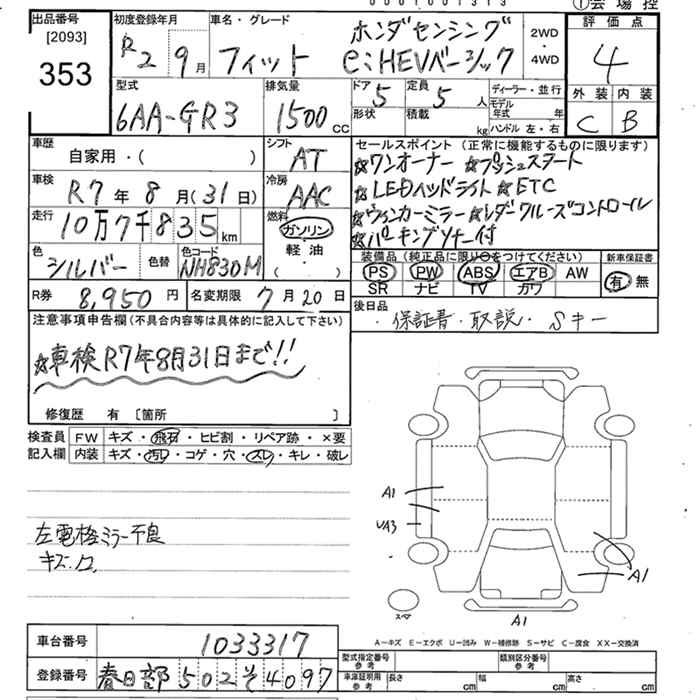 0001001313
①会場控
出品番号
[2093]
353
初度登録年月
R2 9月
車名・グレード
ホンダセンシング
フィット e:HEVベーシック
2WD
・
4WD
評価点
4
外装 内装
C B
型式
6AA-GR3
排気量
1500cc
ドア 5
定員 5人
ディーラー・並行
形状
積載 kg
モデル年式 年
ハンドル 左・右
車歴
自家用・( )
シフト
AT
車検
R7年8月(31日)
冷房
AAC
走行
10万7千835km
燃料
ガソリン
軽油
( ・ )
色
シルバー
色替
色コード
NH830M
R券 8,950円
名変期限 7月20日
セールスポイント (正常に機能するものに限ります)
☆ワンオーナー ☆プッシュスタート
☆LEDヘッドライト ☆ETC
☆ウィンカーミラー ☆レダークルーズコントロール
☆パーキングソナー付
装備品 (純正品に限り○をつけてください)
PS PW ABS エアB AW
SR ナビ TV カワ
新車保証書
有 無
後日品
・保証書・取説・Sキー
注意事項申告欄(不具合内容等は具体的に記入して下さい)
☆車検R7年8月31日まで!!
修復歴 有 〔箇所 〕
検査員記入欄
FW キズ・飛石・ヒビ割・リペア跡・×要
内装 キズ・汚れ・コゲ・穴・スレ・キレ・破レ
左電格ミラー不良
キズ.凹
A1
UA3
A1
A1
スペア
A-キズ E-エクボ U-凹み W-補修跡 S-サビ C-腐食 XX-交換済
車台番号 1033317
登録番号 春日部502そ4097
型式指定番号 参考
類別区分番号 参考
車庫証明用 参考
長さ cm 幅 cm 高さ cm